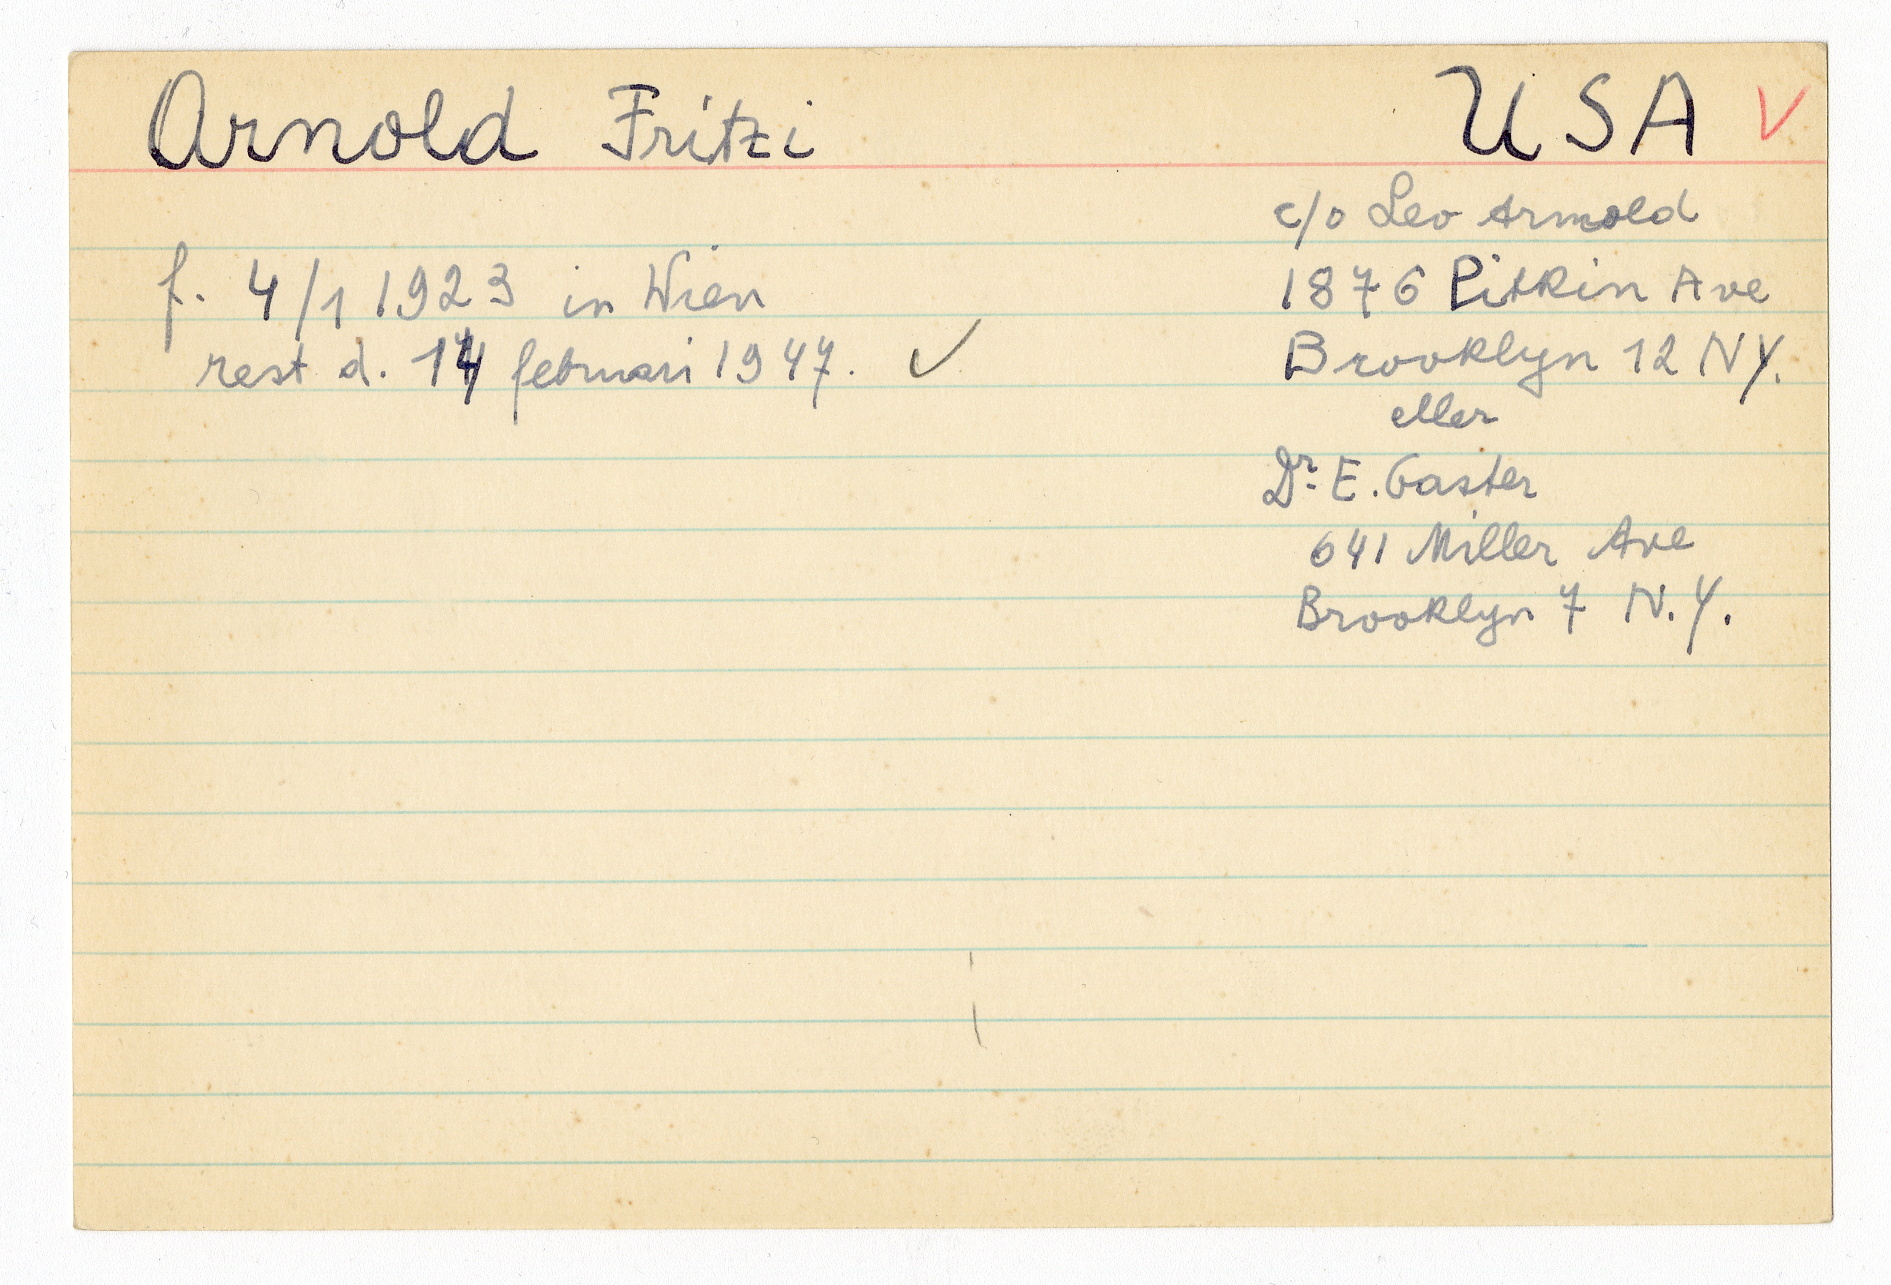 Arnold Fritzi
USA
f. 4/1 1923 in Wien
rest d. 14 februari 1947.
c/o Leo Arnold
1876 Pitkin Ave
Brooklyn 12 NY.
eller
Dr. E. Gaster
641 Miller Ave
Brooklyn 7 N.Y.